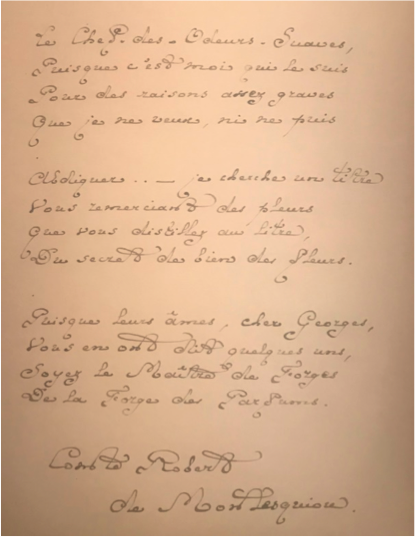 Le Chef-des-Odeurs-Suaves,
Puisque c'est moi qui le suis
Pour des raisons assez graves
Que je ne veux, ni ne puis
Abdiquer .. — je cherche un titre
Vous remerciant des pleurs
Que vous distillez au litre,
Du secret de bien des Fleurs.
Puisque leurs âmes, cher Georges,
Vous en ont dit quelques uns,
Soyez le Maître de Forges
De la Forge des Parfums.
Comte Robert
de Montesquiou.